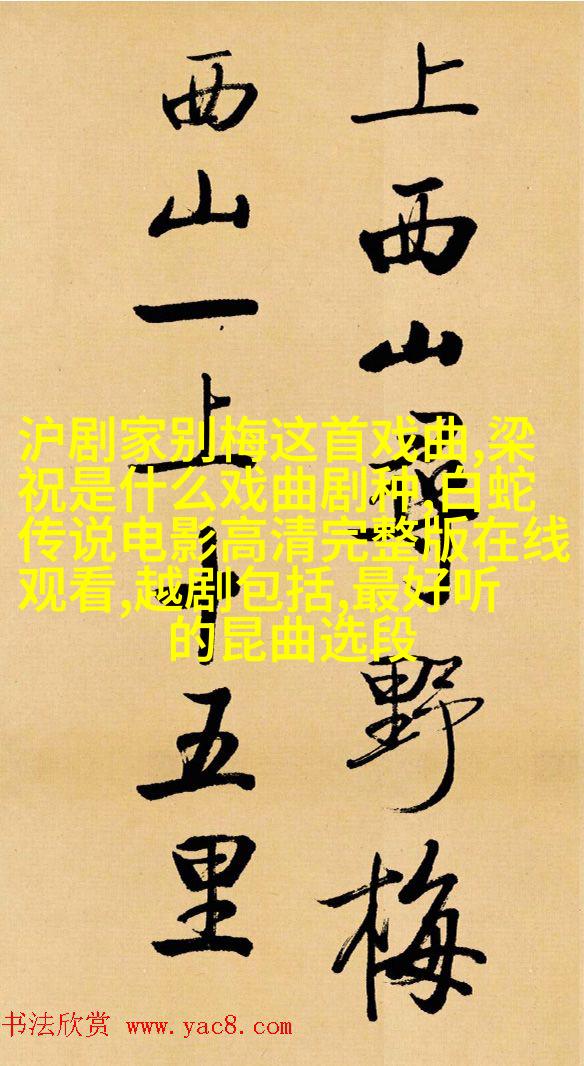 上西山野梅
西山一上十五里
沪剧家别梅这首戏曲,梁
祝是什么戏曲剧种,白蛇
传说电影高清完整版在线
观看,越剧包括,最好听
的昆曲选段
书法欣赏 www.yac8.com